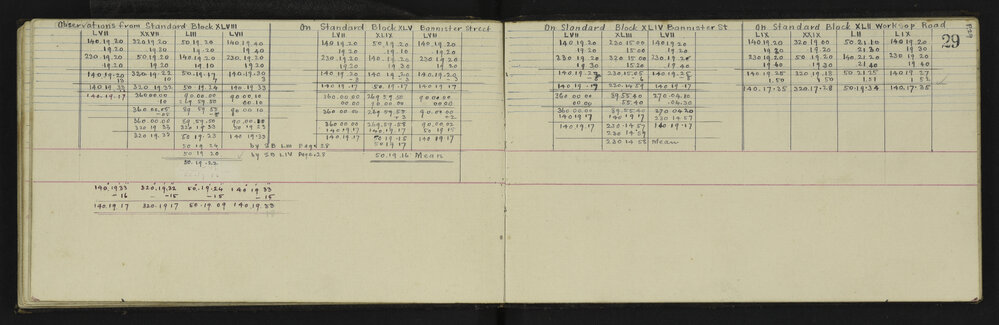 Observations from Standard Block XLVIII
LVII XXVII LIII LVII
140.19.20 320.19.20 50.19.20 140.19.40
19.20 19.20 19.20 19.20
230.19.20 50.19.20 140.19.20 230.19.20
19.20 19.20 19.10 19.20
140.19.20 320.19.22 50.19.17 140.19.30
13 10 7 3
140.19.33 320.19.32 50.19.24 140.19.33
140.19.17 360.00.00 90.00.00 90.00.00
360.00.00 90.00.00
320.19.33 320.19.33 50.19.23
320.19.27 50.19.23 140.19.33
50.19.24 by SB LIII Page 28
50.19.20 by SB LIV Page 28
50.19.22
140.19.33 320.19.32 50.19.24 140.19.33
-16 -15 -15 -15
140.19.17 320.19.17 50.19.09 140.19.33
On Standard Block XLV Bannister Street
LVII XLIX LVII
140.19.20 50.19.20 140.19.20
19.20 19.10 19.20
230.19.20 140.19.20 230.19.20
19.20 19.30 19.20
140.19.20 140.19.20 140.19.20
-3 -3 -3
140.19.17 50.19.17 140.19.17
360.00.00 269.59.50 90.00.00
00.00 00.00.00 00.00.00
360.00.00 269.59.55 90.00.00
+3 +2
360.00.00 269.59.58 90.00.02
140.19.17 140.19.17 50.19.15
140.19.17 50.19.15 140.19.17
50.19.17
50.19.16 Mean
On Standard Block XLIV Bannister St
LVII XLIII LVII
140.19.20 230.15.00 140.19.20
19.20 15.00 19.20
230.19.20 320.15.00 230.19.20
19.30 15.20 19.40
140.19.25 230.15.05 140.19.25
-8 -6 -8
140.19.17 230.14.59 140.19.17
360.00.00 89.55.40 270.04.10
00.00 55.40 .04.30
360.00.00 89.55.40 270.04.20
140.19.17 140.19.17 230.14.57
140.19.17 230.14.57 140.19.17
230.14.59
230.14.58 Mean
On Standard Block XLII Worksop Road
LIX XXIX LII LIX
140.19.20 320.19.00 50.21.10 140.19.20
19.20 19.20 21.30 19.20
230.19.20 50.19.20 140.21.20 230.19.20
19.40 19.30 21.40 19.40
140.19.25 320.19.18 50.21.25 140.19.27
1.50 1.50 1.51 1.52
140.17.35 320.17.28 50.19.34 140.17.35
29
P29